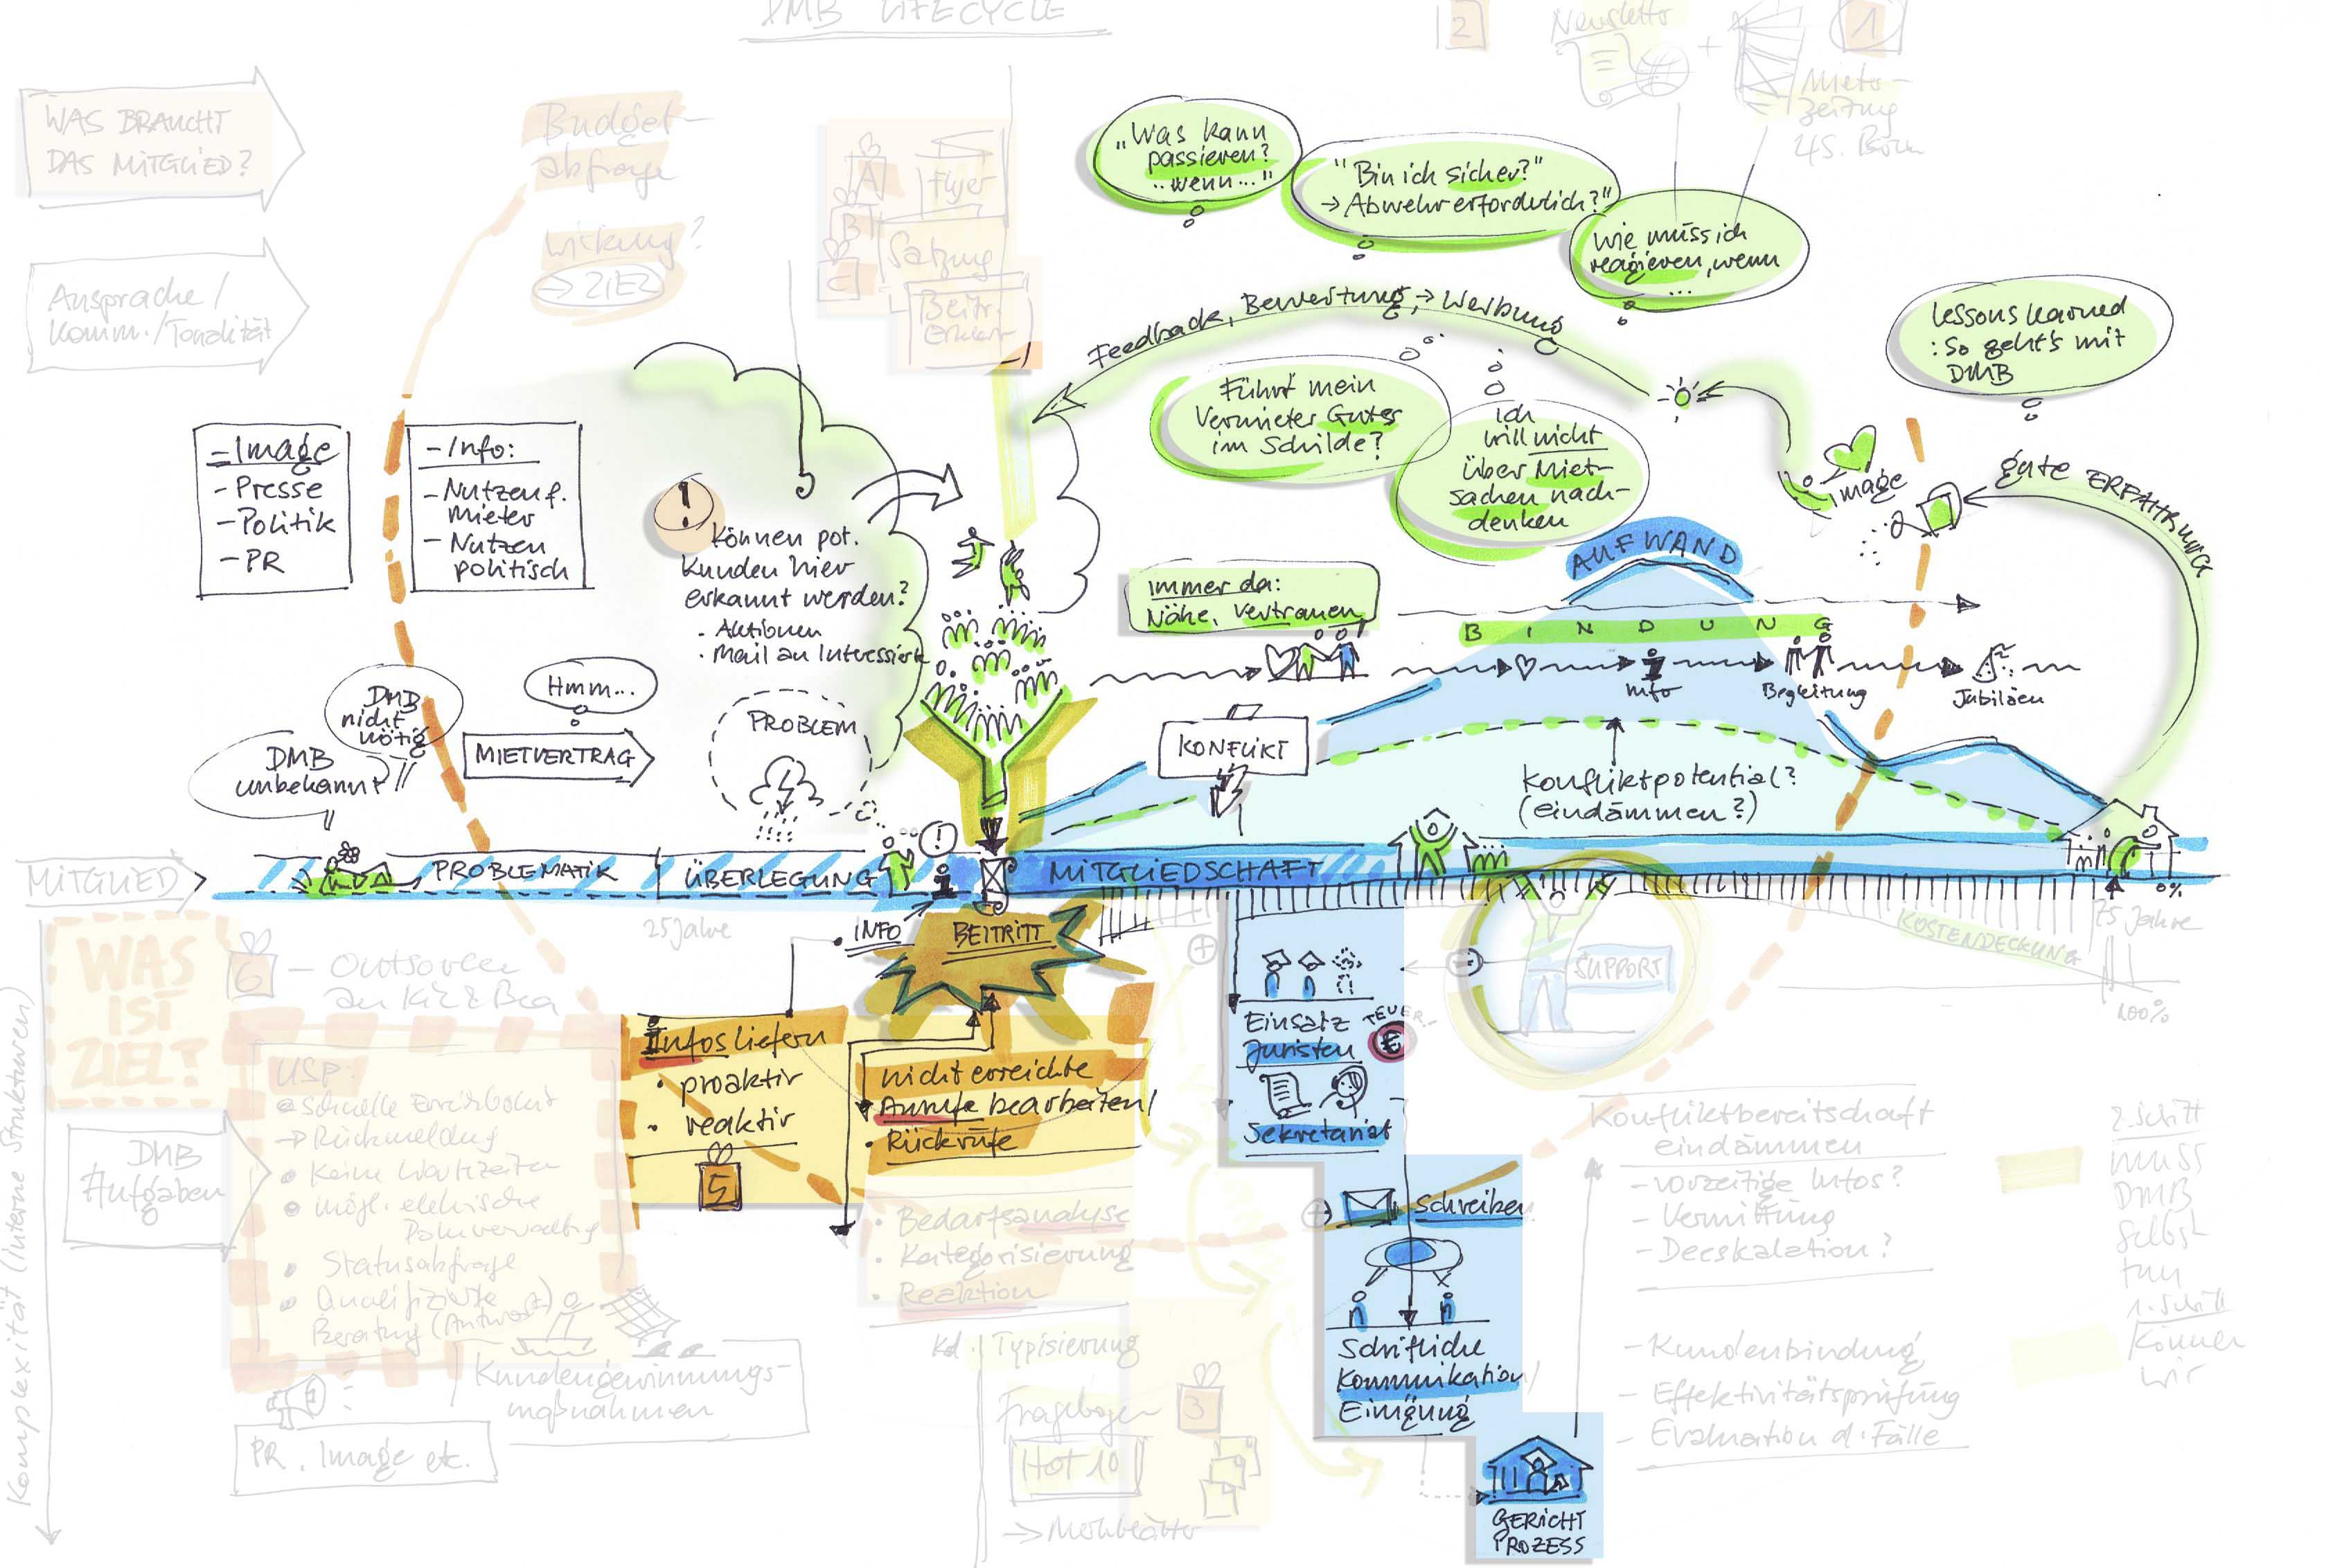 DMB LIFECYCLE
2
Newsletter
+
1
Mieter-
zeitung
WAS BRAUCHT
DAS MITGLIED?
Budget-
abfrage
Wirkung?
→ ZIEL
A
Flyer
B
Satzung
C
Beitr.
Ansprache /
Komm./Tonalität
"Was kann
passieren?
..wenn..."
"Bin ich sicher?"
→ Abwehr erforderlich?"
Wie muss ich
reagieren, wenn
...
Feedback, Bewertung, → Werbung
lessons learned
: So geht's mit
DMB
Führt mein
Vermieter Gutes
im Schilde?
ich
will nicht
über Miet-
sachen nach-
denken
- Image
- Presse
- Politik
- PR
- Info:
- Nutzen f.
Mieter
- Nutzen
politisch
!
Können pot.
Kunden hier
erkannt werden?
· Aktionen
· Mail an Interessierte
Image
gute ERFAHRUNG
AUFWAND
immer da:
Nähe, Vertrauen
BINDUNG
Info
Begleitung
Jubiläen
DMB
nicht
nötig
Hmm...
DMB
unbekannt
MIETVERTRAG
PROBLEM
KONFLIKT
Konfliktpotential?
(eindämmen?)
MITGLIED
PROBLEMATIK
ÜBERLEGUNG
!
i
MITGLIEDSCHAFT
0%
25 Jahre
75 Jahre
KOSTENDECKUNG
100%
· INFO
BEITRITT
WAS
IST
ZIEL?
6
- Outsourcen
SUPPORT
+
-
Einsatz
Juristen
TEUER
€
Sekretariat
Infos liefern
· proaktiv
· reaktiv
5
nicht erreichte
Anrufe bearbeiten/
· Rückrufe
USP:
Schnelle Erreichbarkeit
→ Rückmeldung
Keine Wartezeiten
Statusabfrage
Qualifizierte
Beratung
DMB
Aufgaben
Komplexität (interne Strukturen)
· Bedarfsanalyse
· Kategorisierung
· Reaktion
+
Schreiben
Schriftliche
Kommunikation
Einigung
Konfliktbereitschaft
eindämmen
- vorzeitige Infos?
- Vermittlung
- Deeskalation?
2. Schritt
muss
DMB
selbst
tun
1. Schritt
können
wir
Kd. Typisierung
Fragebogen
3
Hot 10
→ Merkblätter
Kundengewinnungs-
maßnahmen
PR, Image etc.
- Kundenbindung
- Effektivitätsprüfung
- Evaluation d. Fälle
GERICHT
PROZESS